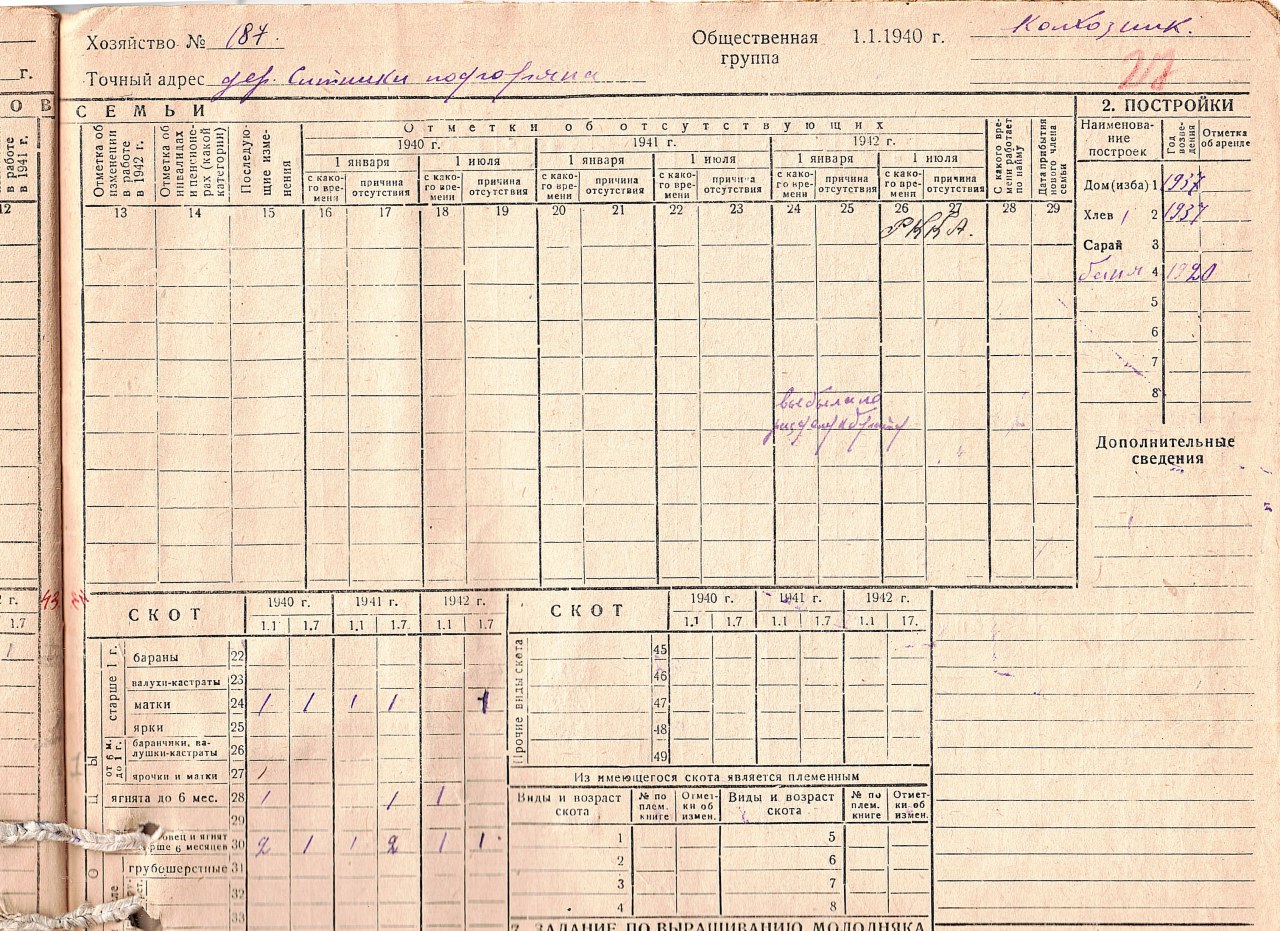 Хозяйство № 187.
Общественная группа 1.1.1940 г. Колхозник.
Точный адрес дер. Ситники
г.
О В
СЕМЬИ
в работе в 1941 г.
12
Отметка об изменении в работе в 1942 г.
Отметка об инвалидах и пенсионерах (какой категории)
Последующие изменения
Отметки об отсутствующих
1940 г. 1941 г. 1942 г.
1 января 1 июля 1 января 1 июля 1 января 1 июля
с како-го вре-мени причина отсутствия с како-го вре-мени причина отсутствия с како-го вре-мени причина отсутствия с како-го вре-мени причина отсутствия с како-го вре-мени причина отсутствия с како-го вре-мени причина отсутствия
С какого вре-мени работает по найму
Дата прибытия нового члена семьи
13 14 15 16 17 18 19 20 21 22 23 24 25 26 27 28 29
РККА.
выбыла по
2. ПОСТРОЙКИ
Наименова-ние построек Год возве-дения Отметка об аренде
Дом (изба) 1 1937
Хлев 1 2 1937
Сарай 3
баня 4 1920
5
6
7
8
Дополнительные сведения
г. 43
1.7
1
СКОТ 1940 г. 1941 г. 1942 г.
1.1 1.7 1.1 1.7 1.1 1.7
старше 1 г.
бараны 22
валухи-кастраты 23
матки 24 1 1 1 1 1
ярки 25
от 6 м. до 1 г.
баранчики, ва-лушки-кастраты 26
ярочки и матки 27 1
ягнята до 6 мес. 28 1 1 1
29
овец и ягнят
рше 6 месяцев 30 2 1 1 2 1 1
грубошерстные 31
32
33
СКОТ 1940 г. 1941 г. 1942 г.
1.1 1.7 1.1 1.7 1.1 17.
Прочие виды скота
45
46
47
48
49
Из имеющегося скота является племенным
Виды и возраст скота № по плем. книге Отмет-ки об измен. Виды и возраст скота № по плем. книге Отмет-ки об измен.
1 5
2 6
3 7
4 8
ЗАДАНИЕ ПО ВЫРАЩИВАНИЮ МОЛОДНЯКА